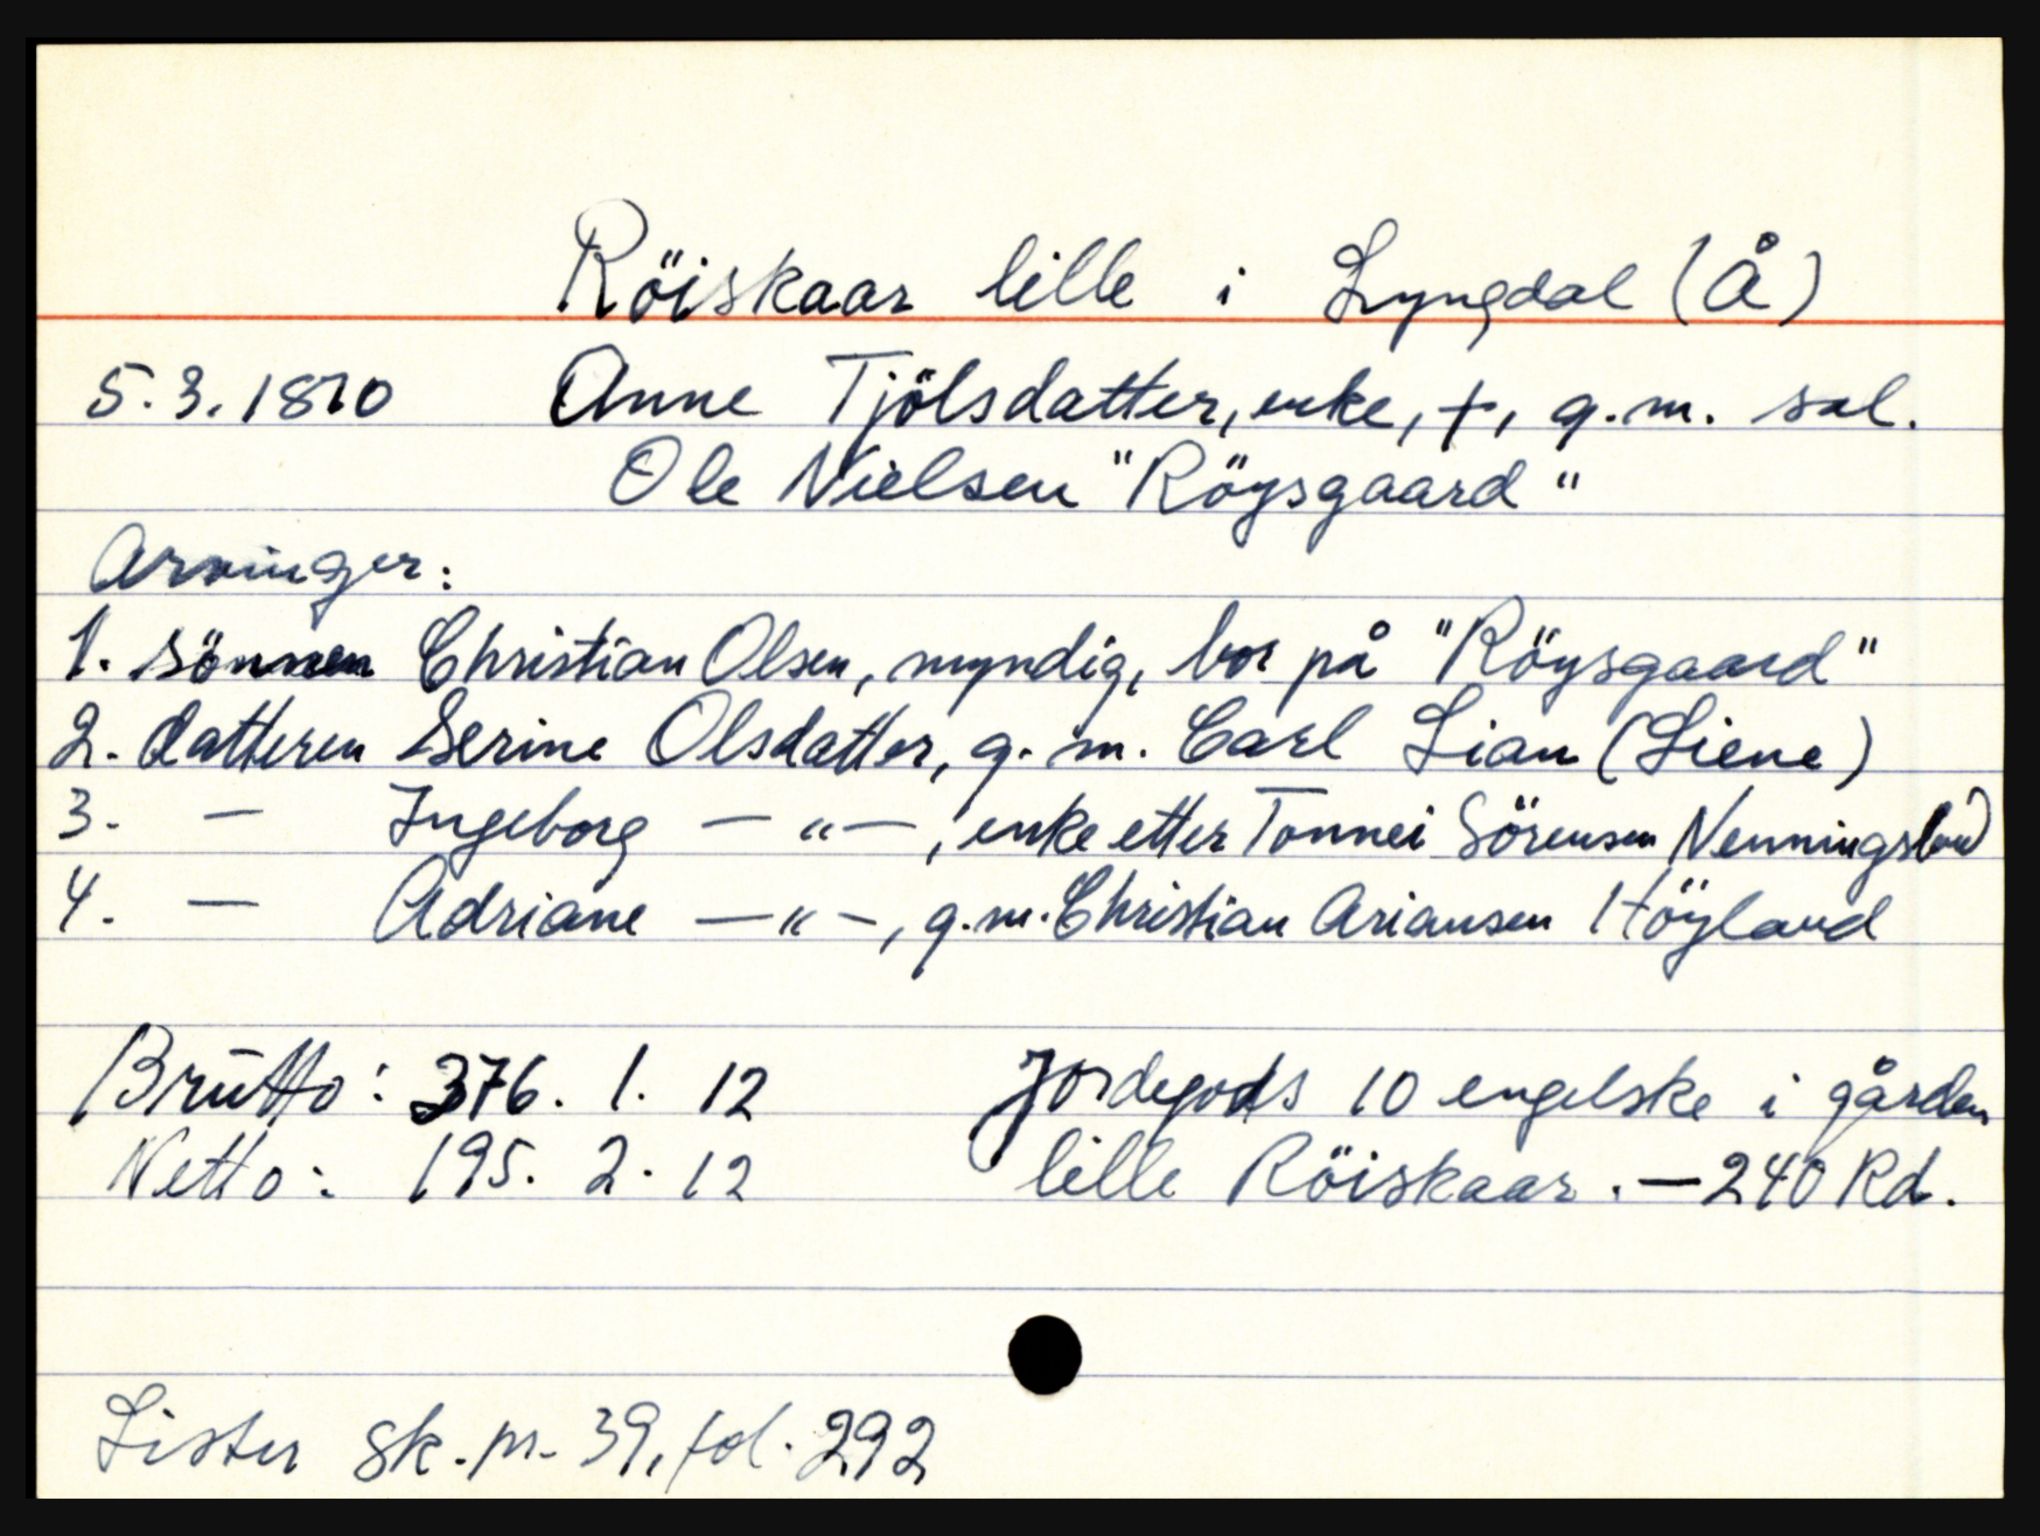 Röiskaar lille i Lyngdal (Å)
5.3.1810 Anne Tjölsdatter, enke, +, g.m. sal.
Ole Nielsen "Röysgaard"
Arvinger:
1. sönnen Christian Olsen, myndig, bor på "Röysgaard"
2. datteren Serine Olsdatter, g.m. Carl Lian (Liene)
3. — Ingeborg —"—, enke etter Tonnei Sörensen Nenningsland
4. — Adriane —"—, g.m. Christian Ariansen Höyland
Brutto: 376. 1. 12 Jordegods 10 engelske i gården
Netto: 195. 2. 12 lille Röiskaar. — 240 Rd.
Lister sk.pr. 39, fol. 292